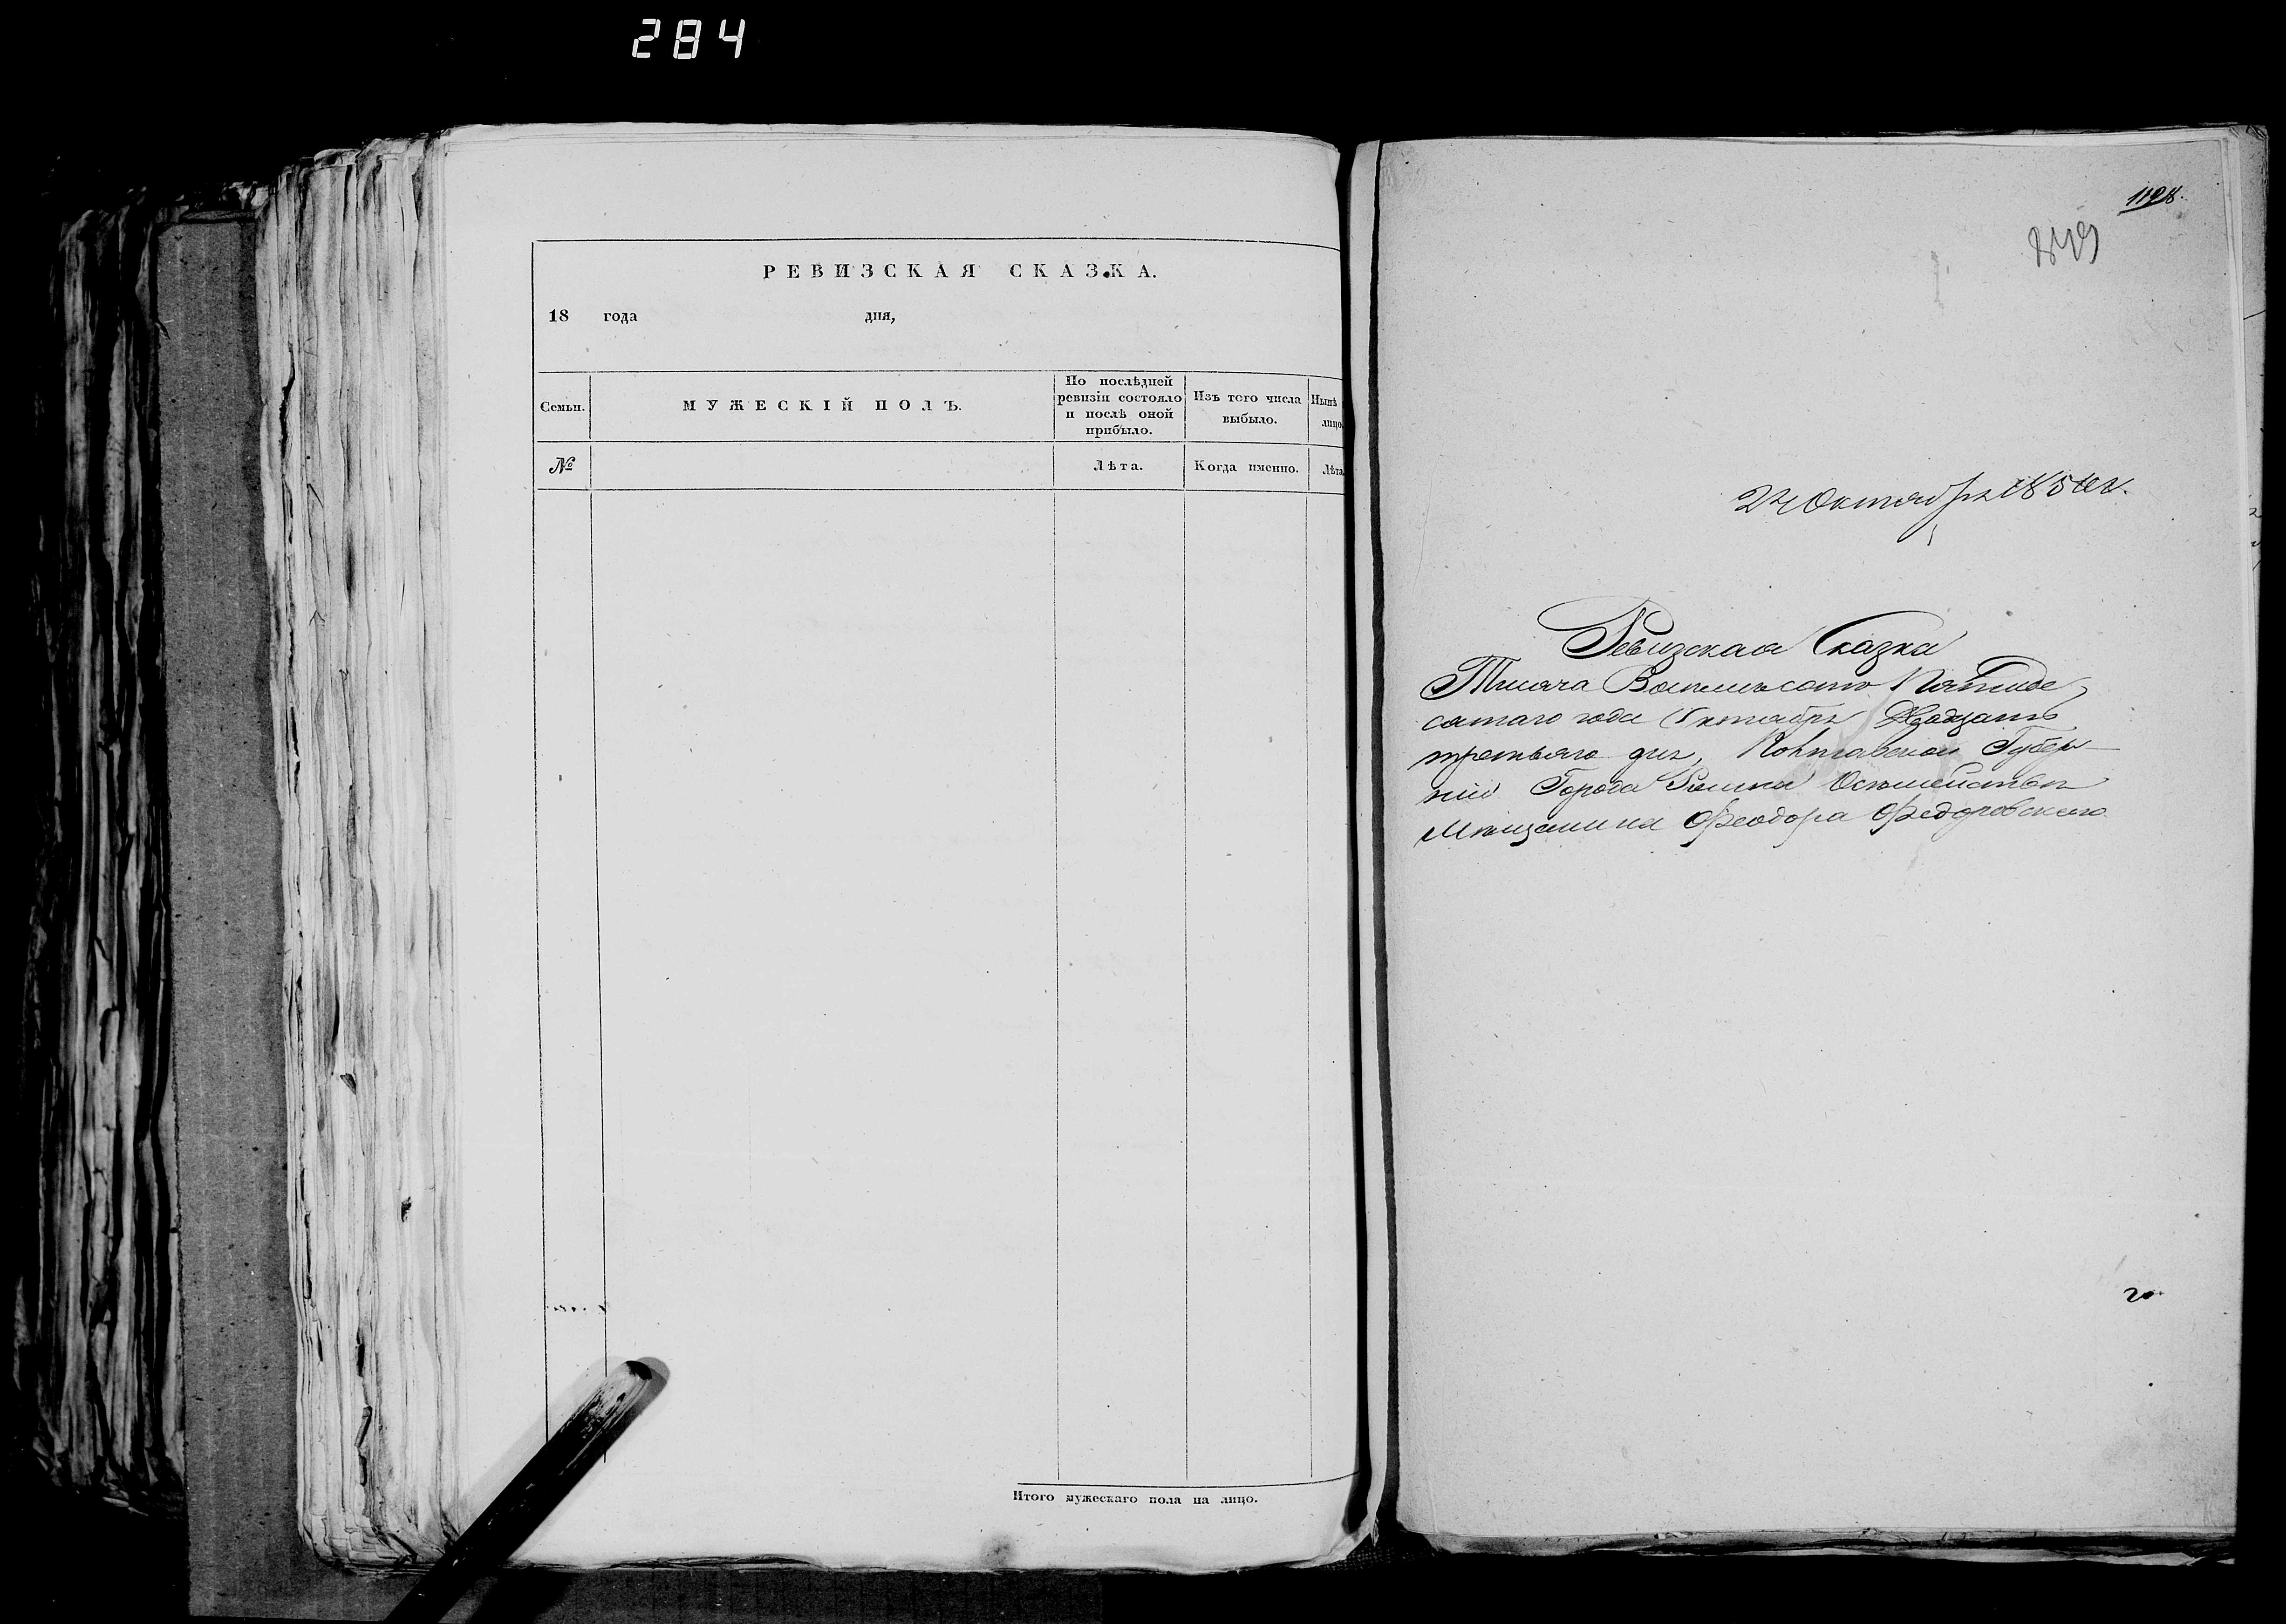 284
РЕВИЗСКАЯ СКАЗКА.
18 года дня,
Семьи.
МУЖЕСКІЙ ПОЛЪ.
По послѣдней
ревизіи состояло
и послѣ оной
прибыло.
Изъ того числа
выбыло.
Нынѣ
лицо
№
Лѣта.
Когда именно.
Лѣта
Итого мужескаго пола на лицо.
1128.
24 Октября 1850
Ревизская Сказка
Тысяча Восемьсотъ Пятьде
сятаго года Октября Двадцать
третьяго дня, Полтавской Губер-
ніи Города
Мѣщанина Феодора Федоровскаго